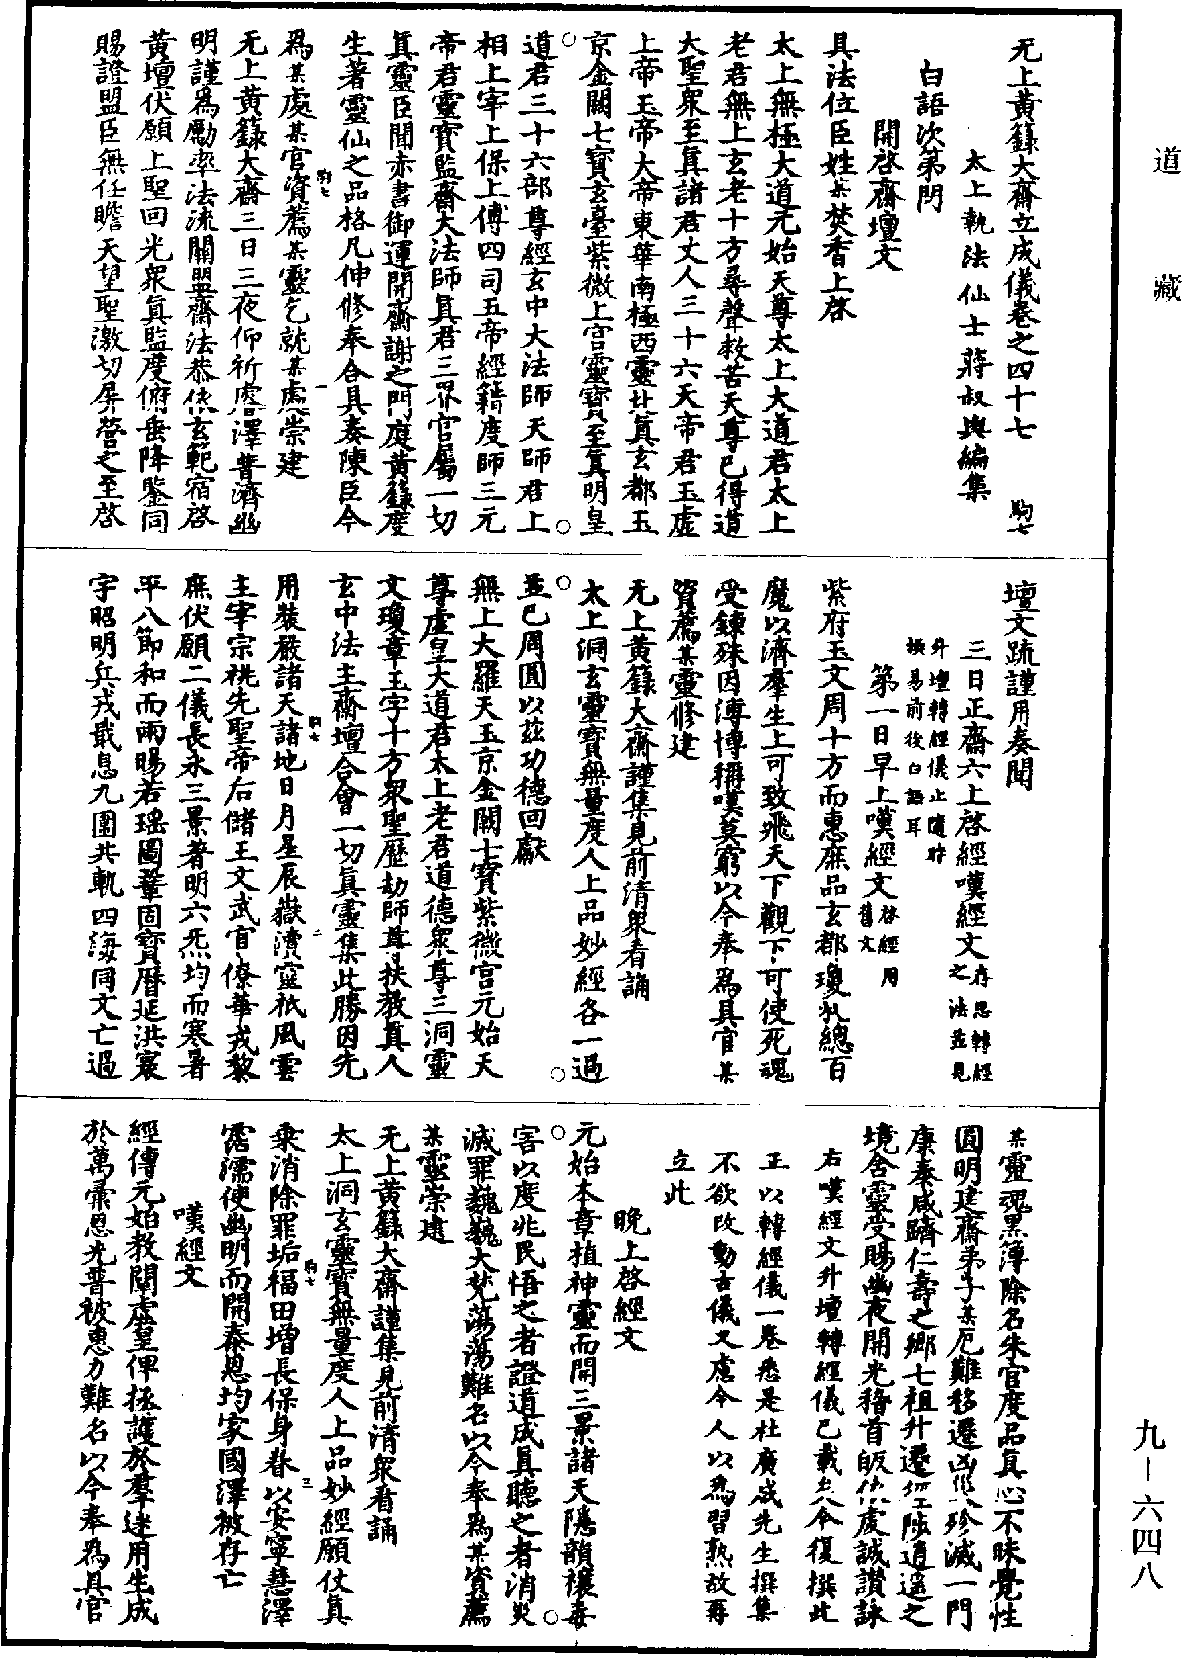 道藏
无上黃籙大齋立成儀卷之四十七 駒七
太上執法仙士蔣叔輿編集
白語次第門
開啓齋壇文
具法位臣姓某焚香上啓
太上無極大道元始天尊太上大道君太上
老君無上玄老十方尋聲救苦天尊已得道
大聖衆至眞諸君丈人三十六天帝君玉虛
上帝玉帝大帝東華南極西靈北眞玄都玉
京金闕七寶玄臺紫微上宮靈寶至眞明皇
道君三十六部尊經玄中大法師天師君上
相上宰上保上傅四司五帝經籍度師三元
帝君靈寶監齋大法師眞君三界官屬一切
眞靈臣聞赤書御運開齋謝之門庭黃籙度
生著靈仙之品格凡伸修奉合具奏陳臣今
爲某處某官資薦某靈乞就某處崇建
无上黃籙大齋三日三夜仰祈睿澤普濟幽
明謹爲勵率法流關盟齋法恭依玄範宿啓
黃壇伏願上聖回光衆眞監度俯垂降鑒同
賜證盟臣無任瞻天望聖激切屏營之至啓
壇文疏謹用奏聞
三日正齋六上啓經嘆經文存思轉經之法並見
升壇轉經儀止隨時換易前後白語耳
第一日早上嘆經文啓經用舊文
紫府玉文周十方而惠庶品玄都瓊札總百
魔以濟羣生上可致飛天下觀下可使死魂
受鍊殊因溥博稱嘆莫窮以今奉爲具官某
資薦某靈修建
无上黃籙大齋謹集見前清衆看誦
太上洞玄靈寶無量度人上品妙經各一過
並已周圓以茲功德回獻
無上大羅天玉京金闕七寶紫微宮元始天
尊虛皇大道君太上老君道德衆尊三洞靈
文瓊章玉字十方衆聖歷劫師尊扶教眞人
玄中法主齋壇合會一切眞靈集此勝因先
用裝嚴諸天諸地日月星辰嶽瀆靈祇風雲
主宰宗祧先聖帝后儲王文武官僚華戎黎
庶伏願二儀長永三景著明六炁均而寒暑
平八節和而雨暘若瑤圖鞏固寶曆延洪寰
宇昭明兵戎戢息九圍共軌四海同文亡過
某靈魂黑簿除名朱官度品眞心不昧覺性
圓明建齋弟子某厄難移遷凶災殄滅一門
康泰咸躋仁壽之鄉七祖升遷徑陟逍遥之
境含靈受賜幽夜開光稽首皈依虔誠讃詠
右嘆經文升壇轉經儀已載矣今復撰此
正以轉經儀一卷悉是杜廣成先生撰集
不欲改動古儀又慮今人以爲習熟故再
立此
晚上啓經文
元始本章植神靈而開三景諸天隱韻禳毒
害以度兆民悟之者證道成眞聽之者消災
滅罪巍巍大梵蕩蕩難名以今奉爲某資薦
某靈崇建
无上黃籙大齋謹集見前清衆看誦
太上洞玄靈寶無量度人上品妙經願仗眞
乘消除罪垢福田增長保身眷以安寧慧澤
霑濡使幽明而開泰恩均家國澤被存亡
嘆經文
經傳元始敎闡虛皇俾拯護於羣迷用生成
於萬彙恩光普被惠力難名以今奉爲具官
九－六四八